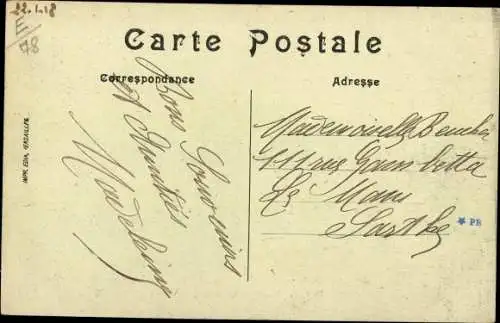 22.1.18
E
78
Carte Postale
Correspondance
Adresse
IMPR. EDIA, VERSAILLES.
Bons Souvenirs
et Amitiés
Madeleine
Mademoiselle
111 rue Gambetta
Le Mans
Sarthe
PB